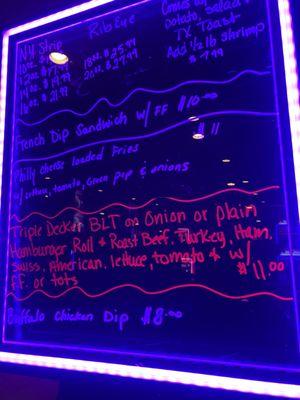 NY Strip
Rib Eye
Comes w/
Potato, Salad &
TX Toast
Add 1/2 lb shrimp
$7.99
18oz. $25.99
20oz. $27.99
16oz. $21.99
French Dip Sandwich w/ FF $10.00
Philly cheese loaded Fries $11
w/ lettuce, tomato, Green pep & onions
Triple Decker BLT on Onion or plain
Hamburger Roll & Roast Beef, Turkey, Ham,
Swiss, American, lettuce, tomato & w/
F.F. or tots $11.00
Buffalo Chicken Dip $8.00